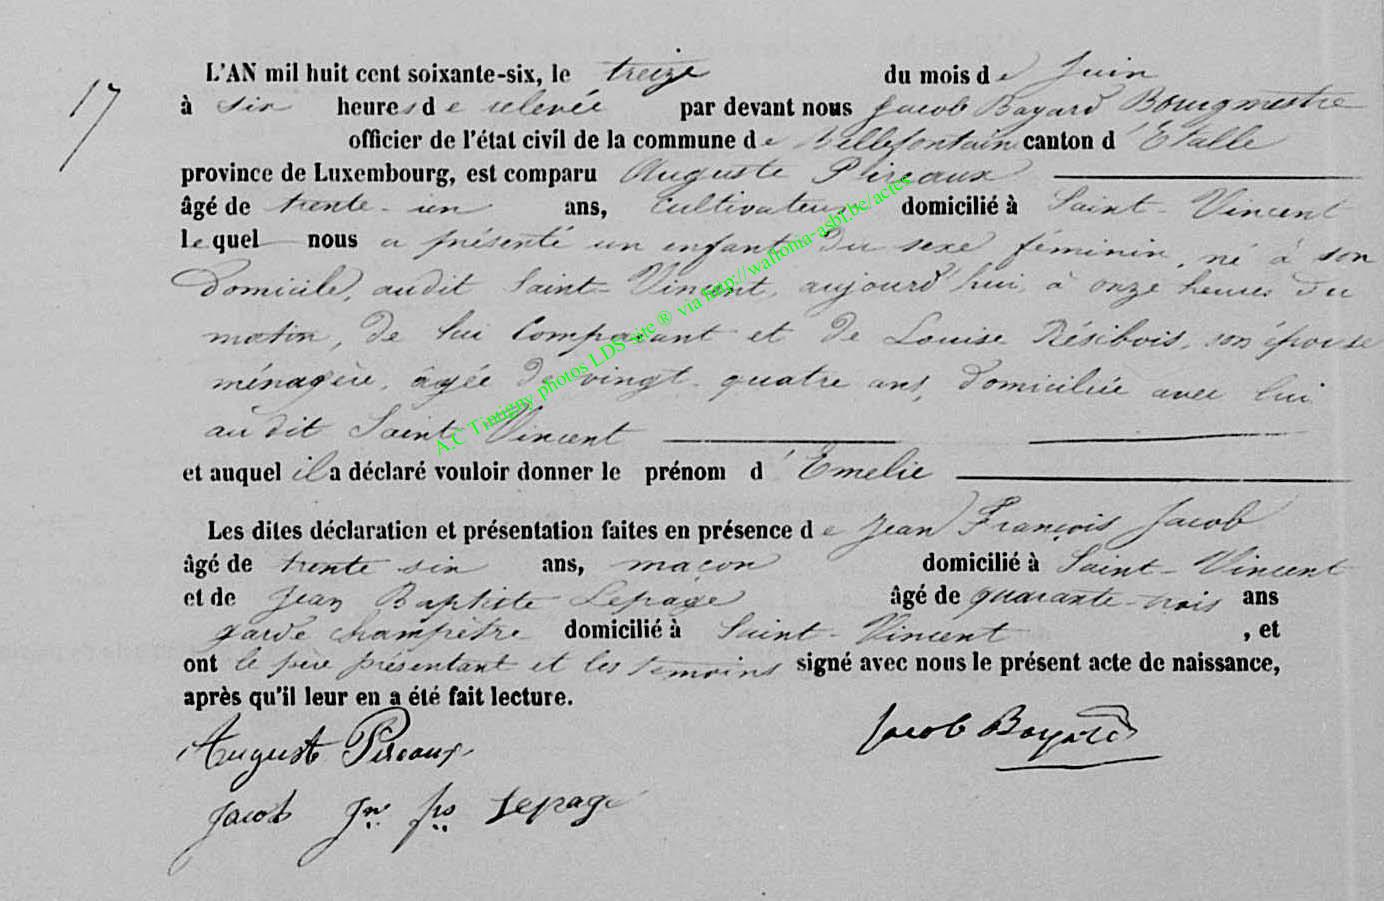 17
L'AN mil huit cent soixante-six, le treize du mois de Juin
à six heures de relevée par devant nous Jacob Bayard Bourgmestre
officier de l'état civil de la commune de Bellefontaine canton d'Etalle
province de Luxembourg, est comparu Auguste Pireaux
âgé de trente-un ans, cultivateur domicilié à Saint-Vincent
lequel nous a présenté un enfant du sexe féminin, né à son
domicile, audit Saint-Vincent, aujourd'hui, à onze heures du
matin, de lui Comparant et de Louise Résibois, son épouse
ménagère, âgée de vingt-quatre ans, domiciliée avec lui
audit Saint Vincent
et auquel il a déclaré vouloir donner le prénom d'Emelie
Les dites déclaration et présentation faites en présence de Jean François Jacob
âgé de trente six ans, maçon domicilié à Saint-Vincent
et de Jean Baptiste Lepage âgé de quarante-trois ans
garde champêtre domicilié à Saint-Vincent , et
ont le père présentant et les temoins signé avec nous le présent acte de naissance,
après qu'il leur en a été fait lecture.
Auguste Pireaux
Jacob Bayard
Jacob Jn fs Lepage
A.C Tintigny photos LDS site ® via http://wallonia-asbl.be/actes